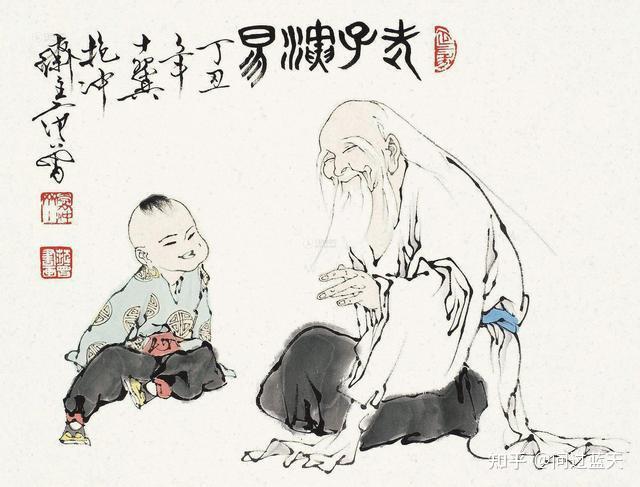 老子演易
丁丑
年
十翼
抱冲
齋主范曾
知乎 @问过蓝天